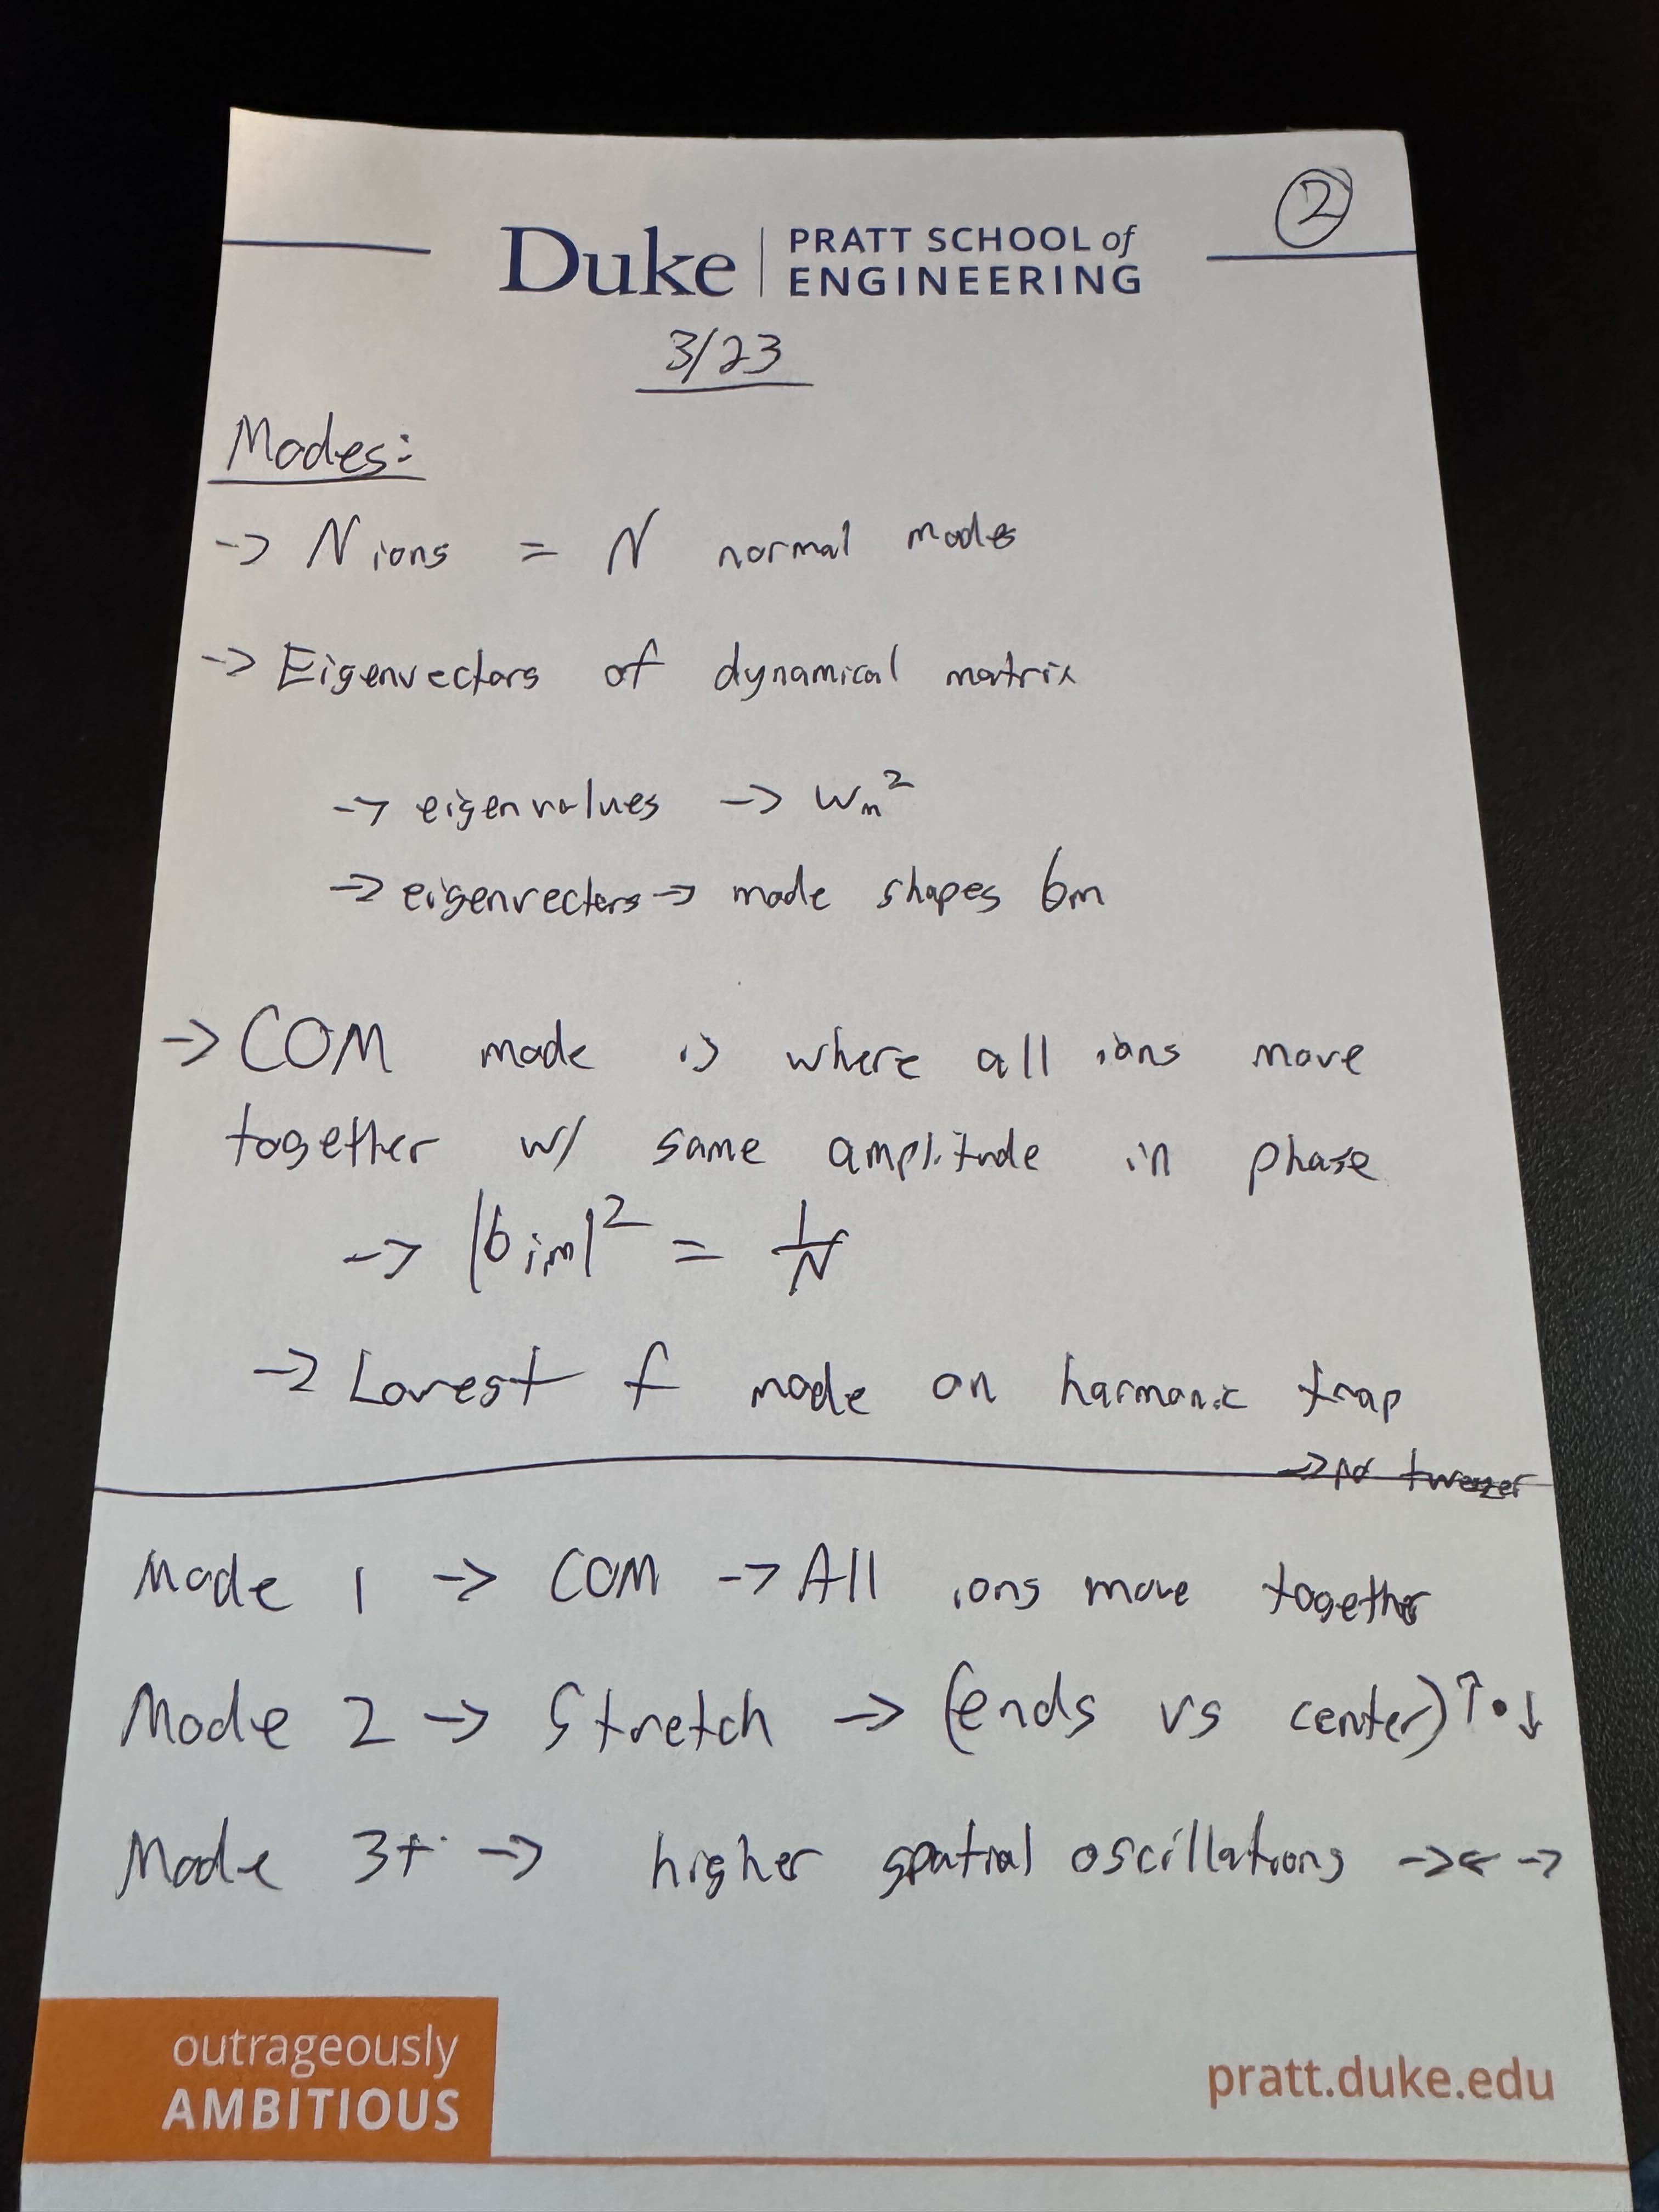 ②
Duke | PRATT SCHOOL of
ENGINEERING
3/23
Modes:
-> N ions = N normal modes
-> Eigenvectors of dynamical matrix
-> eigenvalues -> wₘ²
-> eigenvectors -> mode shapes bm
-> COM mode is where all ions move
together w/ same amplitude in phase
-> |bim|² = 1/N
-> Lowest f mode on harmonic trap
-> no tweezer
Mode 1 -> COM -> All ions move together
Mode 2 -> Stretch -> (ends vs center) ↑•↓
Mode 3+ -> higher spatial oscillations -><- ->
outrageously
AMBITIOUS
pratt.duke.edu